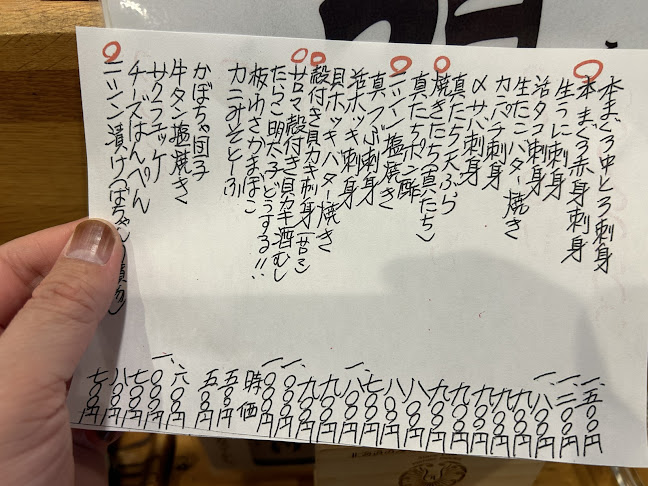 本まぐろ中とろ刺身 一、五〇〇円
本まぐろ赤身刺身 一、二〇〇円
生うに刺身 一、八〇〇円
活タコ刺身 九〇〇円
生たこバター焼き 九〇〇円
カンパチ刺身 九〇〇円
〆サバ刺身 九〇〇円
真たち天ぷら 九〇〇円
焼きたち(真たち) 八〇〇円
真たちポン酢 八〇〇円
ニシン塩焼き 七〇〇円
真つぶ刺身 一、八〇〇円
活ホッキ刺身 九〇〇円
貝ホッキバター焼き 九〇〇円
殻付き貝カキ刺身(サロマ) 一、〇〇〇円
サロマ殻付き貝カキ酒むし 一、〇〇〇円
たらこ明太子どうする!! 時価
板わさかまぼこ 五〇〇円
カニみそとーふ 五〇〇円
かぼちゃ団子 六〇〇円
牛タン塩焼き 一、〇〇〇円
七〇〇円
チーズはんぺん 八〇〇円
ニシン漬け(ばちゃん 七〇〇円